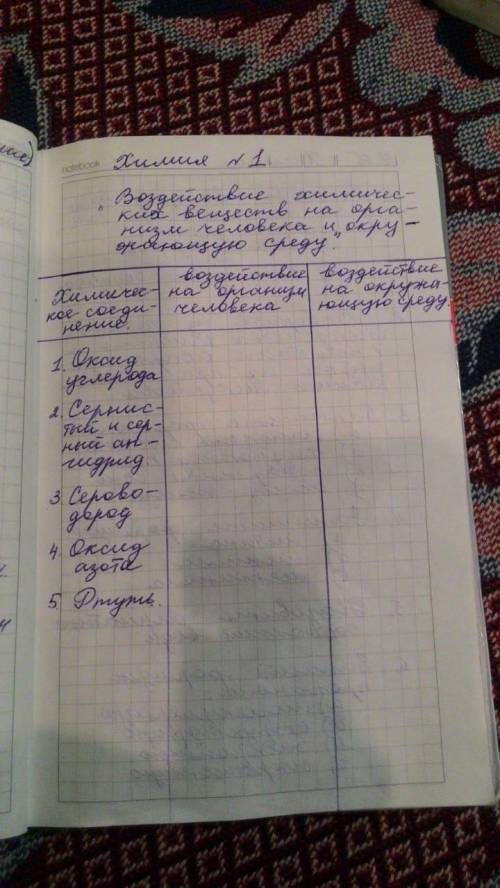 notebook Химия №1
"Воздействие химичес-
ких веществ на орга-
низм человека и окру-
жающую среду."
Химичес-
кое соеди-
нение.
воздействие
на организм
человека
воздействие
на окружа-
ющую среду.
1. Оксид
углерода
2. Сернис-
тый и сер-
ный ан-
гидрид
3. Серово-
дород
4. Оксид
азота
5 Ртуть.